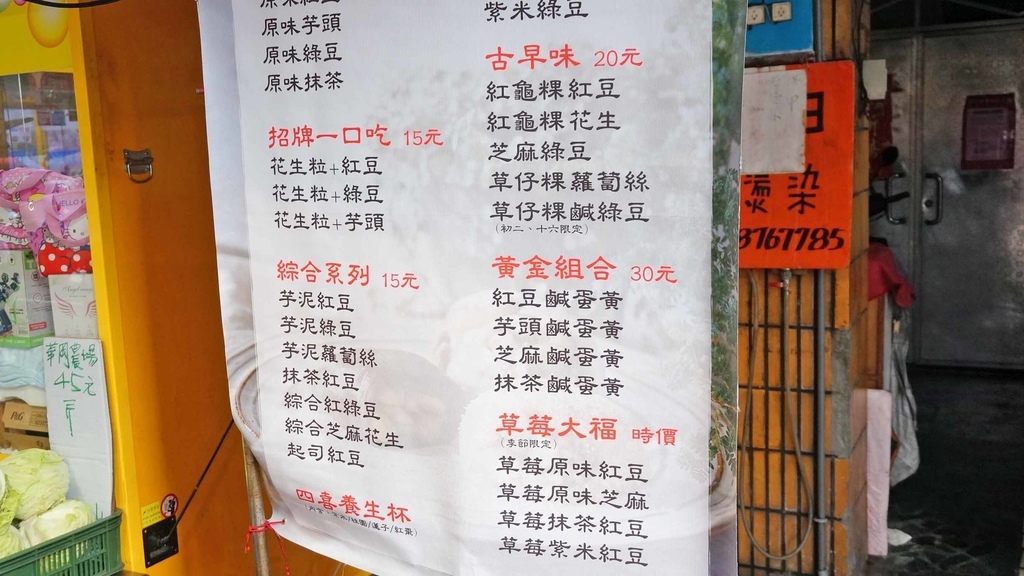 原味芋頭
原味綠豆
原味抹茶
招牌一口吃 15元
花生粒+紅豆
花生粒+綠豆
花生粒+芋頭
綜合系列 15元
芋泥紅豆
芋泥綠豆
芋泥蘿蔔絲
抹茶紅豆
綜合紅綠豆
綜合芝麻花生
起司紅豆
四喜養生杯
紫米綠豆
古早味 20元
紅龜粿紅豆
紅龜粿花生
芝麻綠豆
草仔粿蘿蔔絲
草仔粿鹹綠豆
(初二、十六限定)
黃金組合 30元
紅豆鹹蛋黃
芋頭鹹蛋黃
芝麻鹹蛋黃
抹茶鹹蛋黃
草莓大福 時價
(季節限定)
草莓原味紅豆
草莓原味芝麻
草莓抹茶紅豆
草莓紫米紅豆
染
3767785
45元